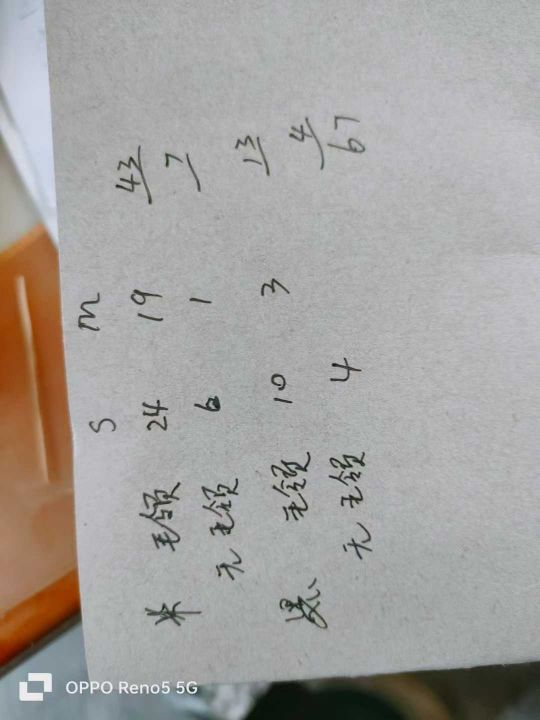 S M
米 毛领 24 19 43
无毛领 6 1 7
黑 毛领 10 3 13
无毛领 4 4
67
OPPO Reno5 5G